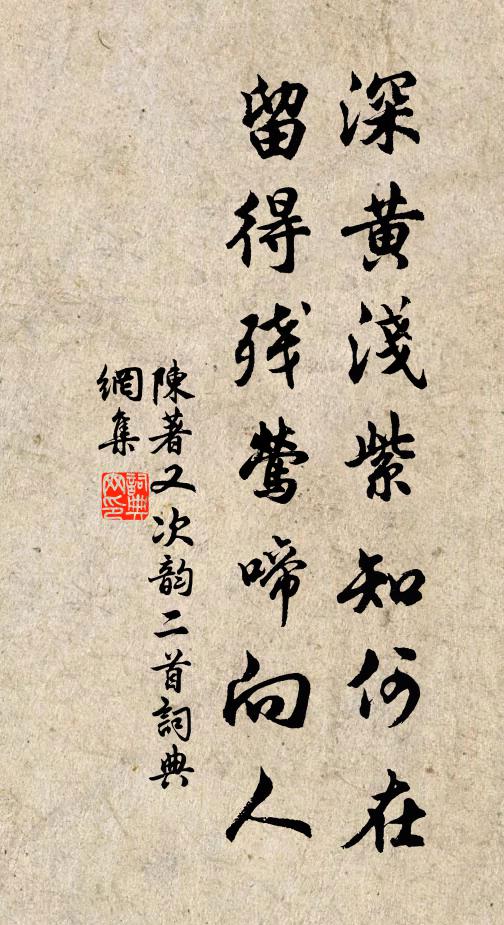 深黄淺紫知何在
留得残莺啼向人
陳著又次韵二首詞典
網集
詞典
網印